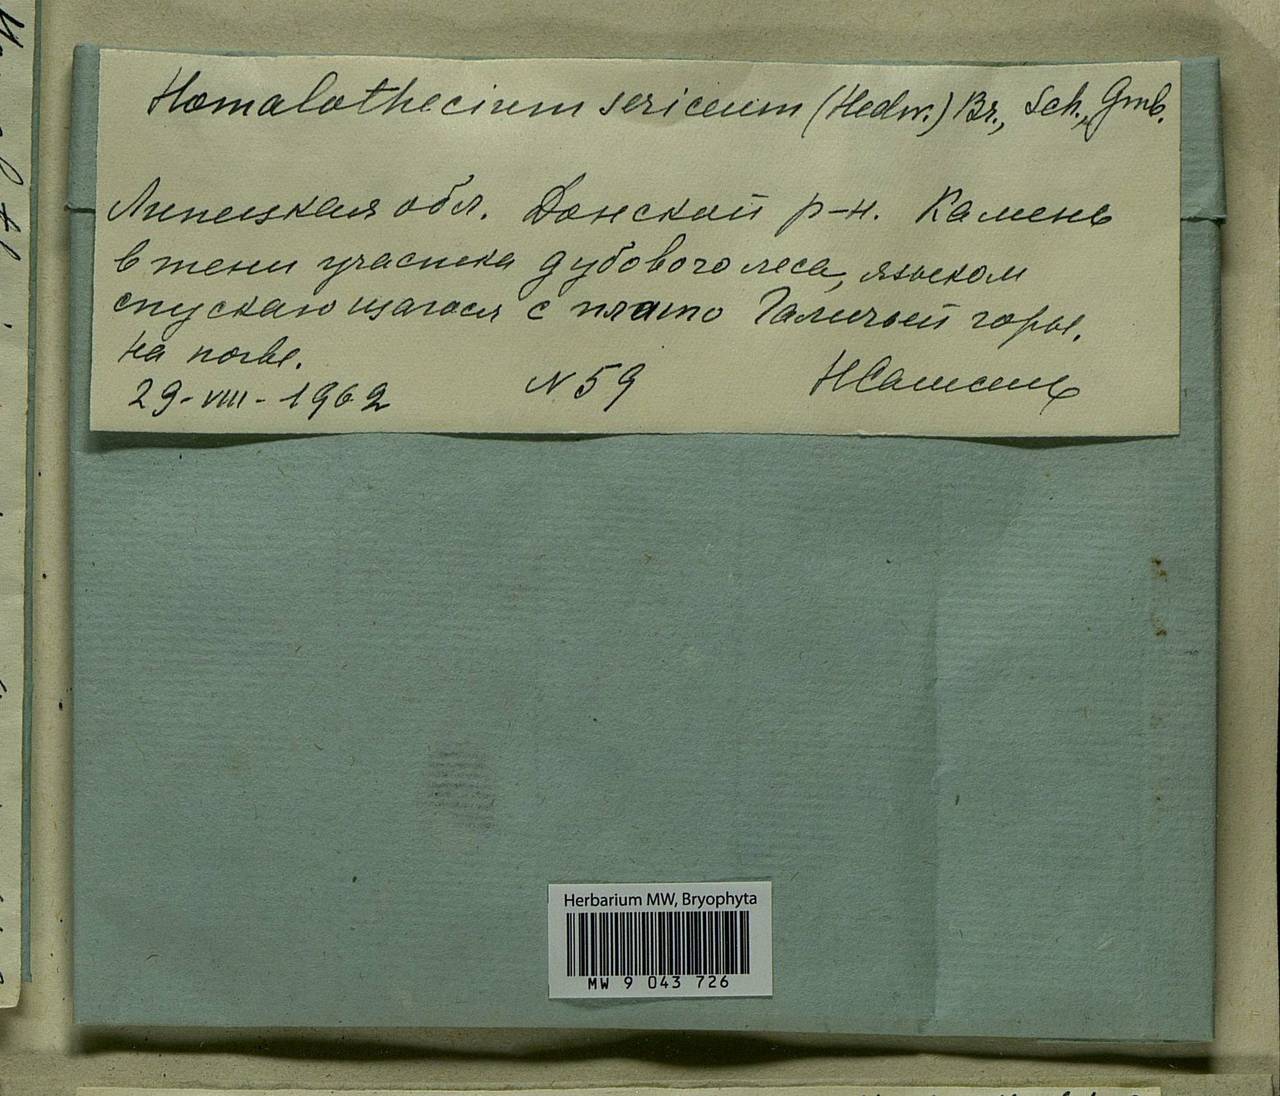 Homalothecium sericeum (Hedw.) Br., Sch., Gmb.
Липецкая обл. Донской р-н. Камень
в тени участка дубового леса, языком
спускающагося с плато Галичьей горы.
на почве.
29-VIII-1962 N 59
Herbarium MW, Bryophyta
MW 9 043 726